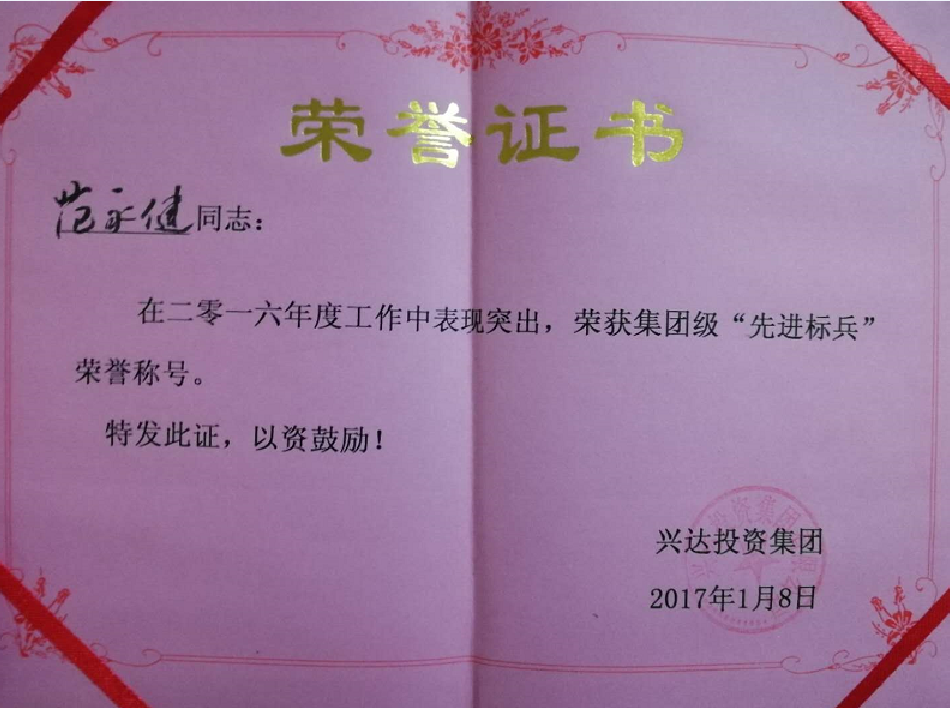 荣誉证书
范永健同志：
在二零一六年度工作中表现突出，荣获集团级“先进标兵”
荣誉称号。
特发此证，以资鼓励！
兴达投资集团
2017年1月8日